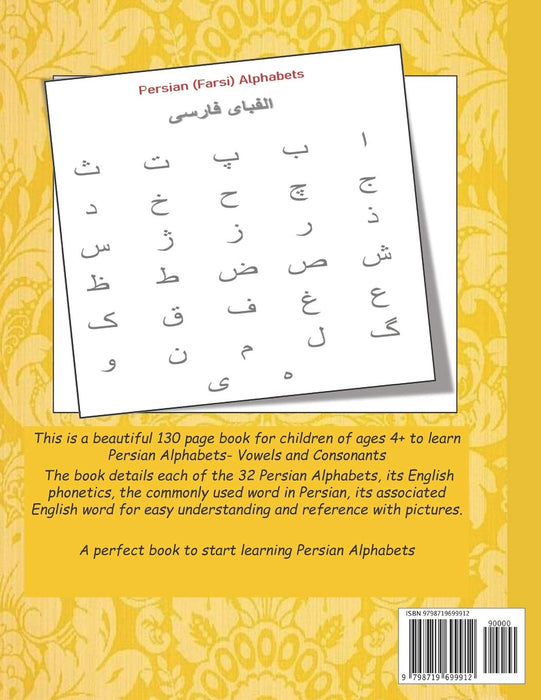 Persian (Farsi) Alphabets
الفبای فارسی
ا ب پ ت ث
ج چ ح خ د
ذ ر ز ژ س
ش ص ض ط ظ
ع غ ف ق ک
گ ل م ن و
ه ی
This is a beautiful 130 page book for children of ages 4+ to learn
Persian Alphabets- Vowels and Consonants
The book details each of the 32 Persian Alphabets, its English
phonetics, the commonly used word in Persian, its associated
English word for easy understanding and reference with pictures.
A perfect book to start learning Persian Alphabets
ISBN 9798719699912
90000
9 798719 699912